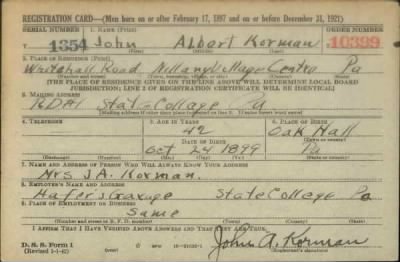 REGISTRATION CARD—(Men born on or after February 17, 1897 and on or before December 31, 1921)
SERIAL NUMBER 1. NAME (Print) ORDER NUMBER
T 1354 John Albert Korman 10399
(First) (Middle) (Last)
2. PLACE OF RESIDENCE (Print)
Whitehall Road Village Centre Pa
(Number and street) (Town, township, village, or city) (County) (State)
[THE PLACE OF RESIDENCE GIVEN ON THE LINE ABOVE WILL DETERMINE LOCAL BOARD
JURISDICTION; LINE 2 OF REGISTRATION CERTIFICATE WILL BE IDENTICAL]
3. MAILING ADDRESS
RD#1 State College Pa
[Mailing address if other than place indicated on line 2. If same insert word same]
4. TELEPHONE 5. AGE IN YEARS 6. PLACE OF BIRTH
42 Oak Hall
DATE OF BIRTH (Town or county)
Oct 24 1899 Pa
(Exchange) (Number) (Mo.) (Day) (Yr.) (State or country)
7. NAME AND ADDRESS OF PERSON WHO WILL ALWAYS KNOW YOUR ADDRESS
Mrs J.A. Korman.
8. EMPLOYER'S NAME AND ADDRESS
Hafers Garage State College Pa
9. PLACE OF EMPLOYMENT OR BUSINESS
Same
(Number and street or R. F. D. number) (Town) (County) (State)
I AFFIRM THAT I HAVE VERIFIED ABOVE ANSWERS AND THAT THEY ARE TRUE.
D. S. S. Form 1 John A. Korman
(Revised 1-1-42) (Registrant's signature)